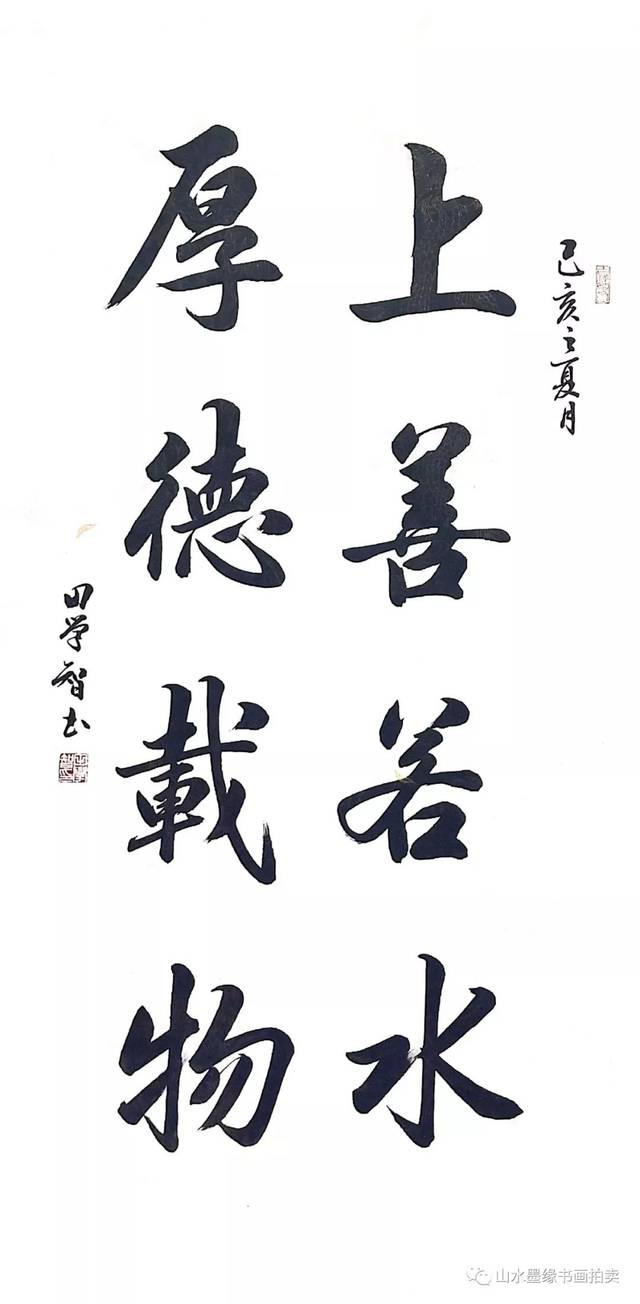 己亥之夏月
上善若水
厚德載物
田学智书
山水墨缘书画拍卖